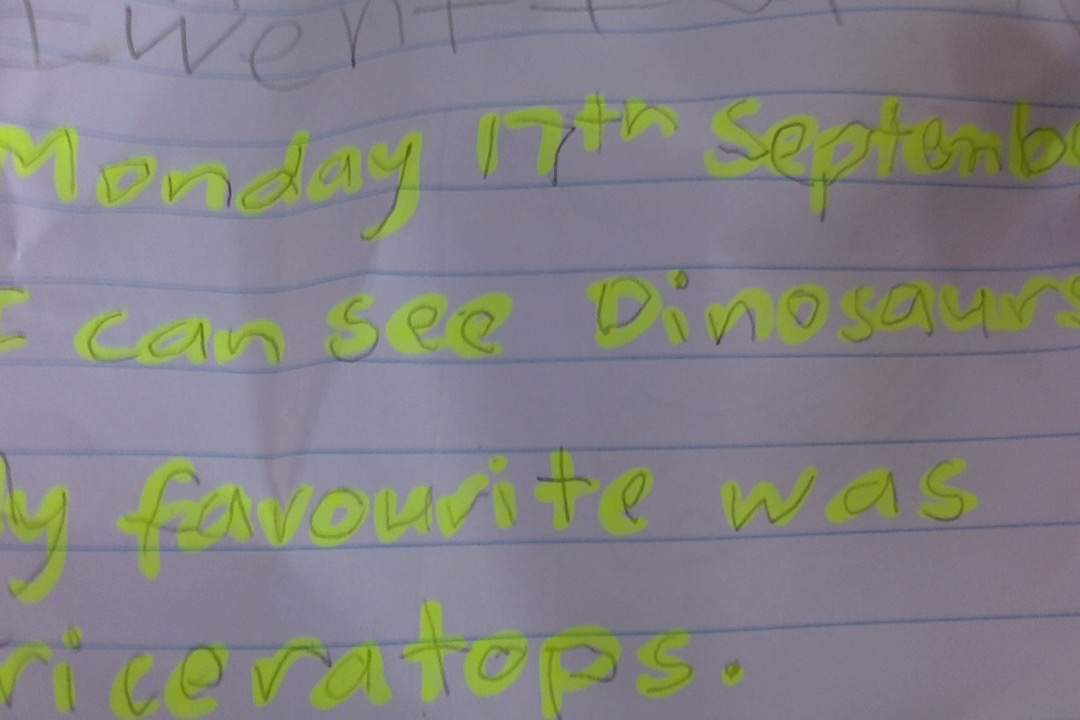 I went to
Monday 17th Septembe
I can see Dinosaurs
y favourite was
riceratops.